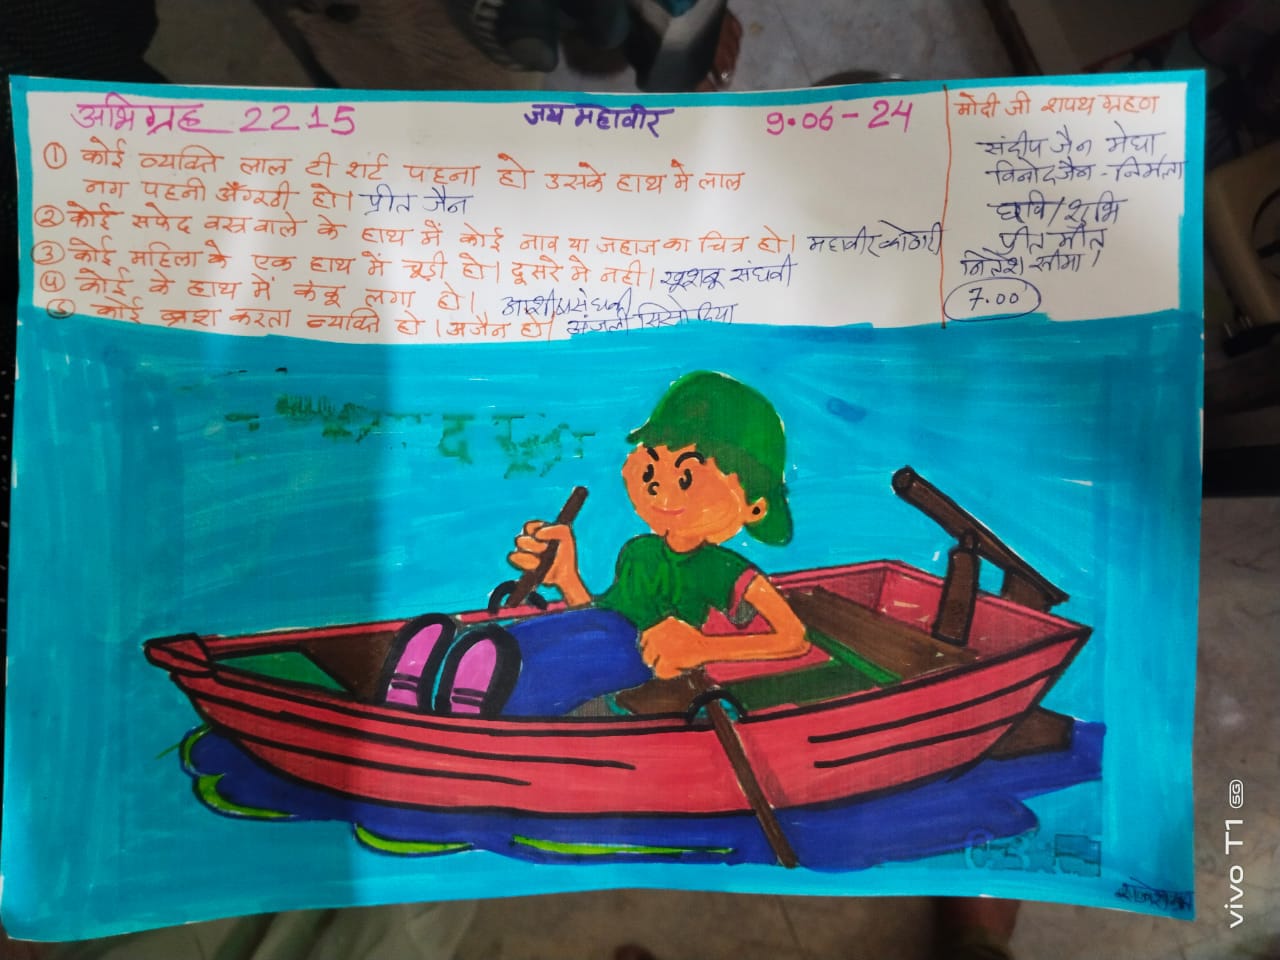 अभिग्रह 2215
जय महावीर
9.06-24
① कोई व्यक्ति लाल टी शर्ट पहना हो उसके हाथ मे लाल
नग पहनी अँगूठी हो। प्रीत जैन
② कोई सफेद वस्त्र वाले के हाथ में कोई नाव या जहाज का चित्र हो। महावीर कोठारी
③ कोई महिला के एक हाथ में चूड़ी हो। दूसरे मे नही। खुशबू संघवी
④ कोई के हाथ में कंकू लगा हो। आशीष संघवी
⑤ कोई ब्रश करता व्यक्ति हो। अजैन हो। अंजली सिसोदिया
मोदी जी शपथ ग्रहण
संदीप जैन मेघा
विनोद जैन - निर्मला
छवि / शुभि
प्रीत मीत
नितेश सीमा।
7.00
(M)
vivo T1 5G